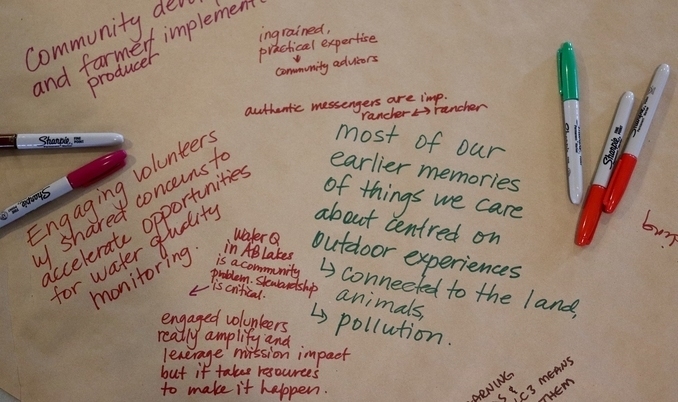 Community
and farmer/ implement
producer
ingrained,
practical expertise
community advisors
authentic messengers are imp.
rancher ↔ rancher
most of our
earlier memories
of things we care
about centred on
outdoor experiences
↳ connected to the land,
animals,
↳ pollution.
Sharpie
Sharpie
Engaging volunteers
w/ shared concerns to
accelerate opportunities
for water quality
monitoring.
Water Q
in AB Lakes
is a community
problem. Stewardship
is critical.
engaged volunteers
really amplify and
leverage mission impact
but it takes resources
to make it happen.
Sharpie
Sharpie
MEANS
THEM